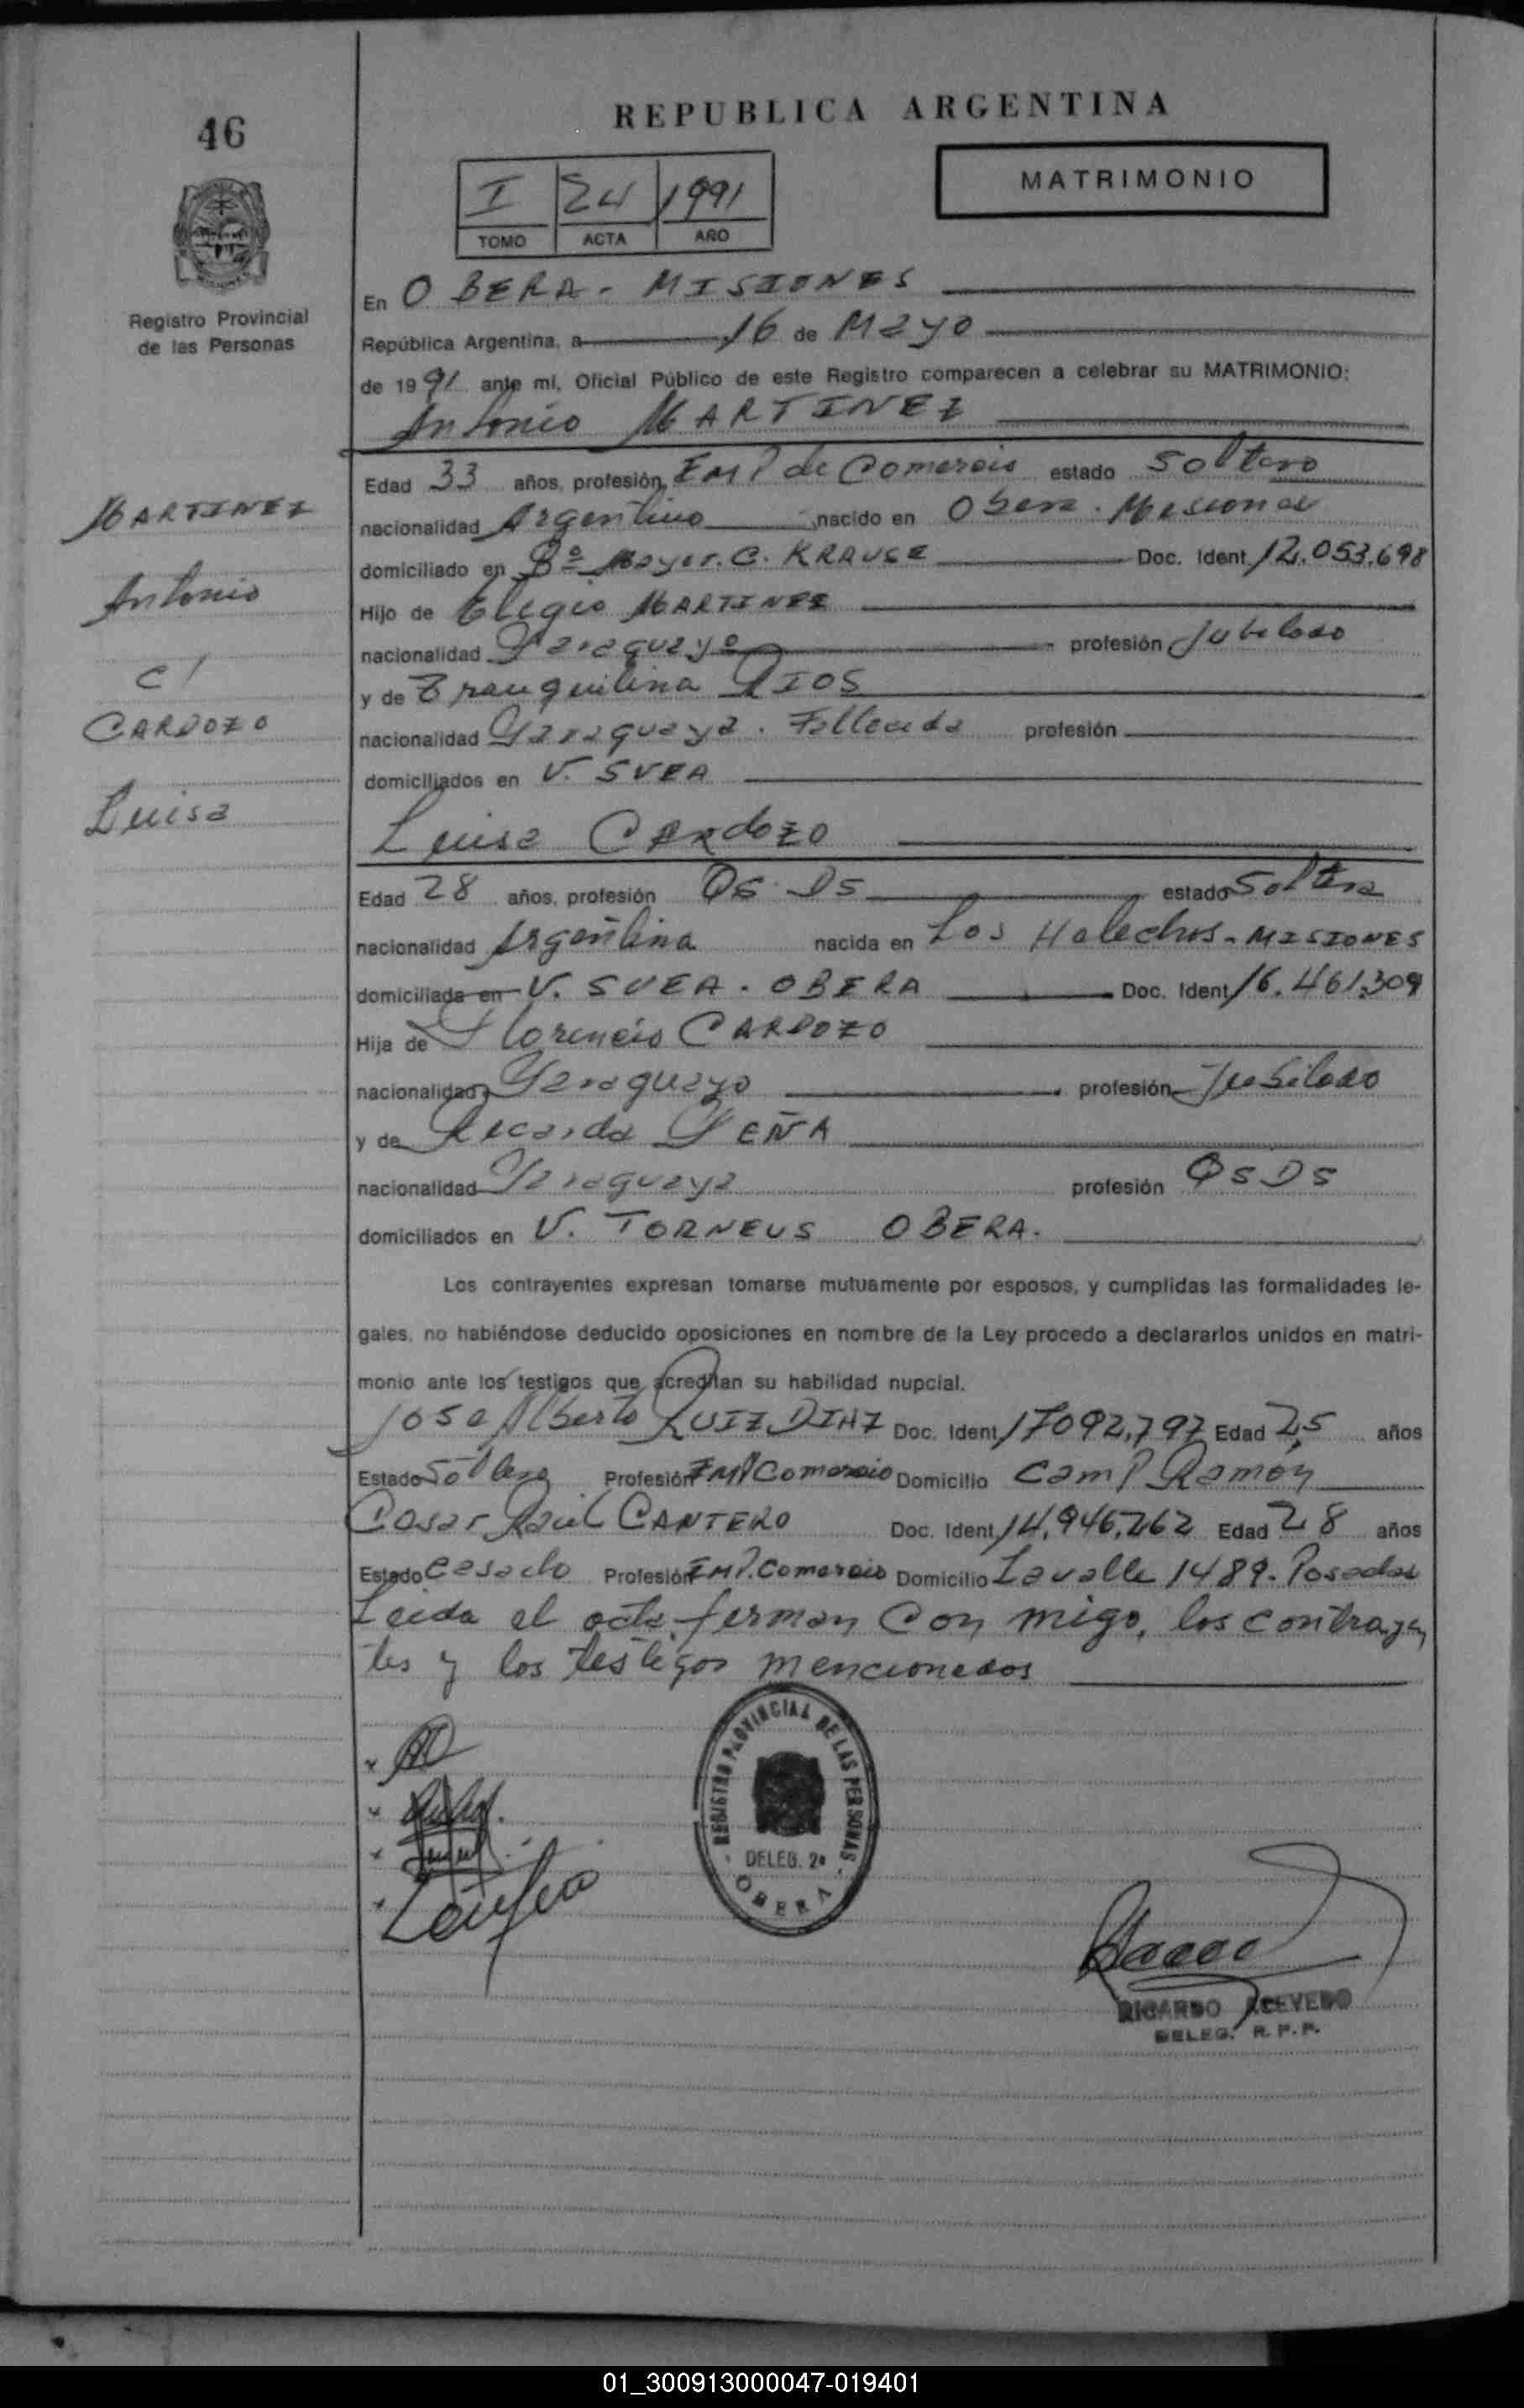 46
REPUBLICA ARGENTINA
MATRIMONIO
I 24 1991
TOMO ACTA AÑO
Registro Provincial
de las Personas
En OBERA - MISIONES
República Argentina, a 16 de Mayo
de 1991 ante mí, Oficial Público de este Registro comparecen a celebrar su MATRIMONIO:
Antonio MARTINEZ
Edad 33 años, profesión Emp de Comercio estado Soltero
MARTINEZ
nacionalidad Argentino nacido en Obera. Misiones
domiciliado en Bº Mayor. C. KRAUSE Doc. Ident 12.053.698
Antonio
Hijo de Eligio MARTINEZ
nacionalidad Paraguayo profesión Jubilado
C/
y de Tranquilina RIOS
CARDOZO
nacionalidad Paraguaya. Fallecida profesión
domiciliados en V. SVEA
Luisa
Luisa CARDOZO
Edad 28 años, profesión Qs Ds estado Soltera
nacionalidad Argentina nacida en Los Helechos - MISIONES
domiciliada en V. SVEA. OBERA Doc. Ident 16.461.309
Hija de Florencio CARDOZO
nacionalidad Paraguayo profesión Jubilado
y de Ricarda PEÑA
nacionalidad Paraguaya profesión Qs Ds
domiciliados en V. TORNEUS OBERA.
Los contrayentes expresan tomarse mutuamente por esposos, y cumplidas las formalidades le-
gales, no habiéndose deducido oposiciones en nombre de la Ley procedo a declararlos unidos en matri-
monio ante los testigos que acreditan su habilidad nupcial.
Jose Alberto RUIZ DIAZ Doc. Ident 17092.797 Edad 25 años
Estado Soltero Profesión Emp Comercio Domicilio Camp Ramón
Cesar Raul CANTERO Doc. Ident 14.946.262 Edad 28 años
Estado Casado Profesión Emp. Comercio Domicilio Lavalle 1489. Posadas
Leida el acta, firman con migo, los contrayen
tes y los testigos mencionados
REGISTRO PROVINCIAL DE LAS PERSONAS
DELEG. 2ª
OBERA
RICARDO ACEVEDO
DELEG. R. P. P.
01_300913000047-019401